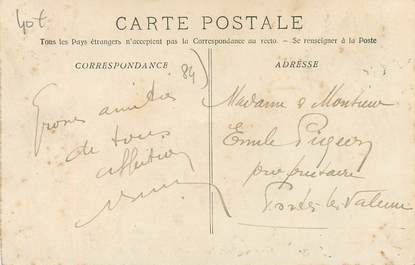 40t
CARTE POSTALE
Tous les Pays étrangers n'acceptent pas la Correspondance au recto. — Se renseigner à la Poste
CORRESPONDANCE
ADRESSE
84)
Grosses amitiés
de tous
affection
Madame & Monsieur
Emile Pigeon
propriétaire
Portes les Valence